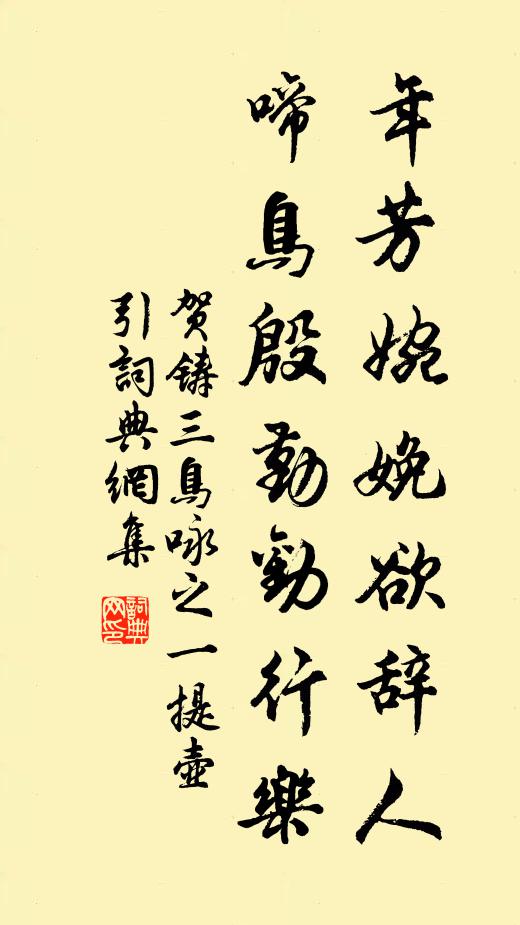 年芳婉娩欲辞人
啼鳥殷勤勸行樂
贺鑄三鳥咏之一提壺
引詞典網集
詞典网印